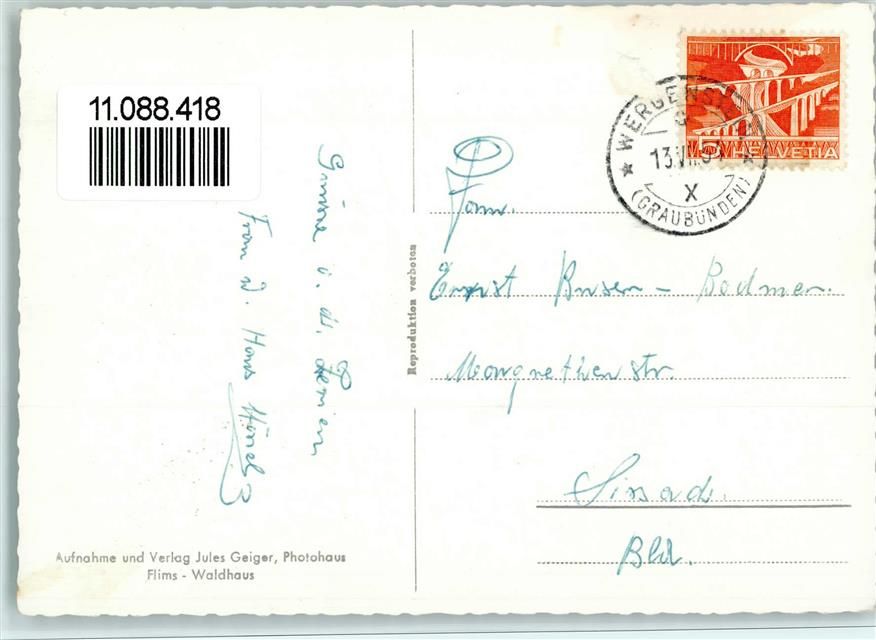 11.088.418
Grüsse v. d. Ferien
Fran W. Hans
Fam.
Ernst Buser - Bodmer.
Margrethenstr.
Sissach.
Bld.
WERGENSTEIN
13.VII.
X
(GRAUBÜNDEN)
5 HELVETIA
Reproduktion verboten
Aufnahme und Verlag Jules Geiger, Photohaus
Flims - Waldhaus